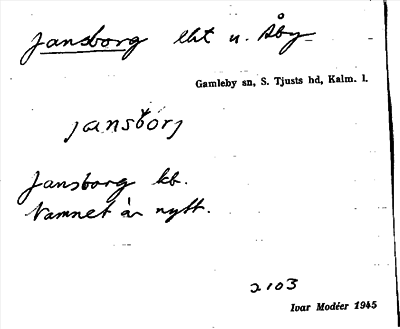 Jansborg lht u. Åby
Gamleby sn, S. Tjusts hd, Kalm. l.
jansborj
Jansborg kb.
Namnet är nytt.
2103
Ivar Modéer 1945